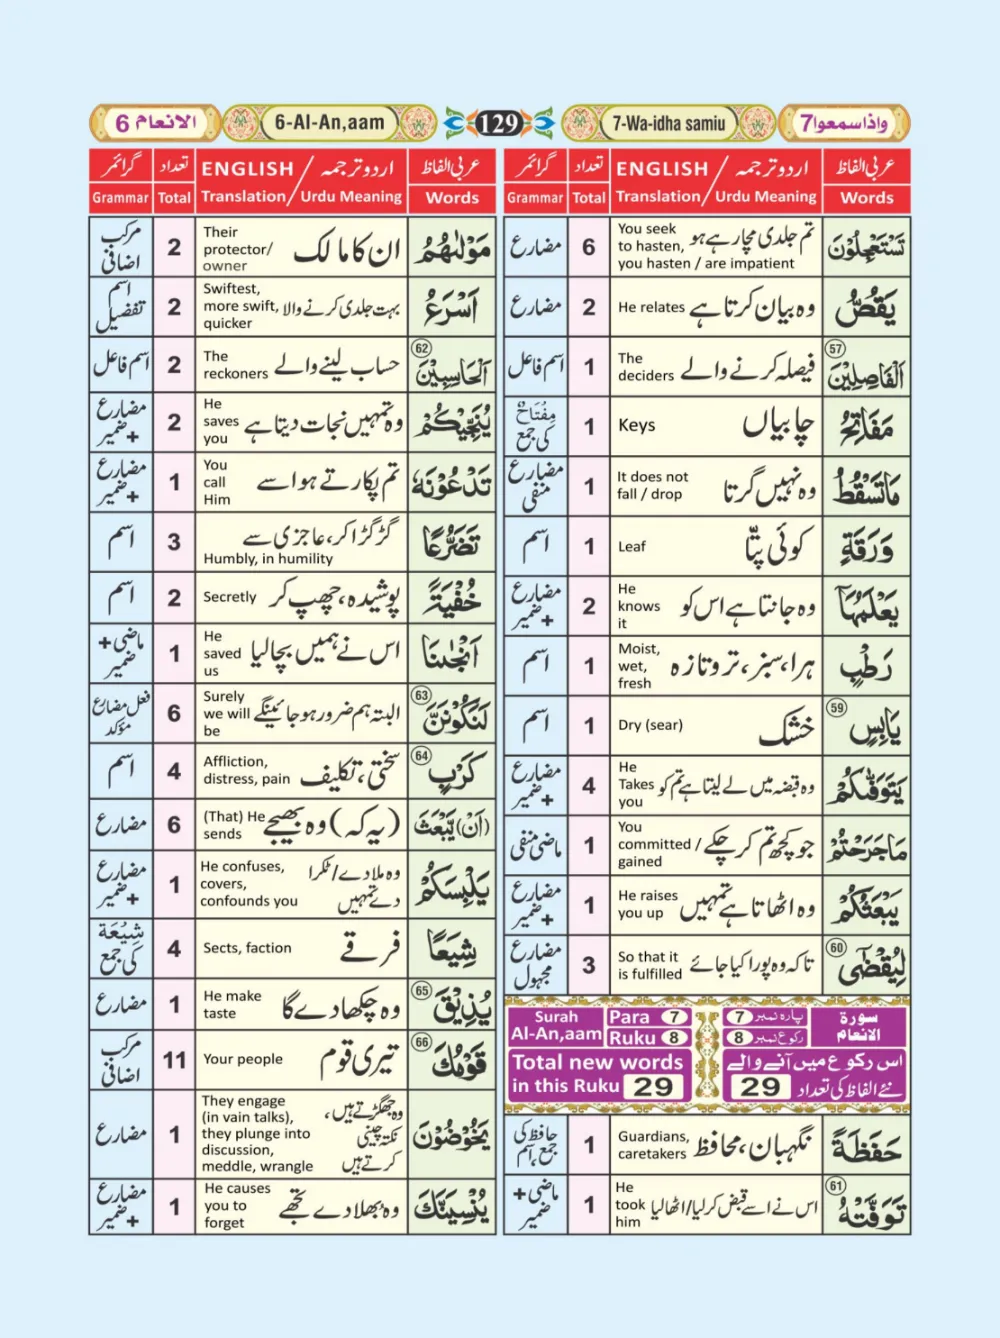 واذاسمعوا7
7-Wa-idha samiu
129
6-Al-An,aam
الانعام 6
عربی الفاظ اردو ترجمہ / ENGLISH تعداد گرائمر
Words Urdu Meaning / Translation Total Grammar
تَسْتَعْجِلُوْنَ
تم جلدی مچا رہے ہو
You seek
to hasten,
you hasten / are impatient
6
مضارع
يَقُصُّ
وہ بیان کرتا ہے
He relates
2
مضارع
57
الْفَاصِلِيْنَ
فیصلہ کرنے والے
The
deciders
1
اسم فاعل
مَفَاتِحُ
چابیاں
Keys
1
مِفْتَاحٌ
کی جمع
مَاتَسْقُطُ
وہ نہیں گرتا
It does not
fall / drop
1
مضارع
منفی
وَرَقَةٍ
کوئی پتّا
Leaf
1
اسم
يَعْلَمُهَا
وہ جانتا ہے اس کو
He
knows
it
2
مضارع
+ ضمیر
رَطْبٍ
ہرا، سبز، تروتازہ
Moist,
wet,
fresh
1
اسم
59
يَابِسٍ
خشک
Dry (sear)
1
اسم
يَتَوَفّٰىكُمْ
وہ قبضہ میں لے لیتا ہے تم کو
He
Takes
you
4
مضارع
+ ضمیر
مَاجَرَحْتُمْ
جو کچھ تم کر چکے
You
committed /
gained
1
ماضی منفی
يَبْعَثُكُمْ
وہ اٹھاتا ہے تمہیں
He raises
you up
1
مضارع
+ ضمیر
60
لِيُقْضٰٓى
تاکہ وہ پورا کیا جائے
So that it
is fulfilled
3
مضارع
مجہول
Surah
Al-An,aam
Para 7
Ruku 8
پارہ نمبر 7
رکوع نمبر 8
سورة
الانعام
Total new words
in this Ruku 29
اس رکوع میں آنے والے
نئے الفاظ کی تعداد 29
حَفَظَةً
نگہبان، محافظ
Guardians,
caretakers
1
حافظ کی
جمع، اسم
61
تَوَفَّتْهُ
اس نے اسے قبض کرلیا/اٹھالیا
He
took
him
1
ماضی +
ضمیر
عربی الفاظ اردو ترجمہ / ENGLISH تعداد گرائمر
Words Urdu Meaning / Translation Total Grammar
مَوْلٰىهُمُ
ان کا مالک
Their
protector/
owner
2
مرکب
اضافی
اَسْرَعُ
بہت جلدی کرنے والا
Swiftest,
more swift,
quicker
2
اسم
تفضیل
62
الْحَاسِبِيْنَ
حساب لینے والے
The
reckoners
2
اسم فاعل
يُنَجِّيْكُمْ
وہ تمہیں نجات دیتا ہے
He
saves
you
2
مضارع
+ ضمیر
تَدْعُوْنَهٗ
تم پکارتے ہو اسے
You
call
Him
1
مضارع
+ ضمیر
تَضَرُّعًا
گڑگڑا کر، عاجزی سے
Humbly, in humility
3
اسم
خُفْيَةً
پوشیدہ، چھپ کر
Secretly
2
اسم
اَنْجٰىنَا
اس نے ہمیں بچا لیا
He
saved
us
1
ماضی +
ضمیر
63
لَنَكُوْنَنَّ
البتہ ہم ضرور ہو جائینگے
Surely
we will
be
6
فعل مضارع
مؤکد
64
كَرْبٍ
سختی، تکلیف
Affliction,
distress, pain
4
اسم
(اَنْ) يَّبْعَثَ
(یہ کہ) وہ بھیجے
(That) He
sends
6
مضارع
يَلْبِسَكُمْ
وہ ملا دے/ٹکرا
دے تمہیں
He confuses,
covers,
confounds you
1
مضارع
+ ضمیر
شِيَعًا
فرقے
Sects, faction
4
شِيْعَة
کی جمع
65
يُذِيْقَ
وہ چکھا دے گا
He make
taste
1
مضارع
66
قَوْمُكَ
تیری قوم
Your people
11
مرکب
اضافی
يَخُوْضُوْنَ
وہ جھگڑتے ہیں،
نکتہ چینی
کرتے ہیں
They engage
(in vain talks),
they plunge into
discussion,
meddle, wrangle
1
مضارع
يُنْسِيَنَّكَ
وہ بھلا دے تجھے
He causes
you to
forget
1
مضارع
+ ضمیر